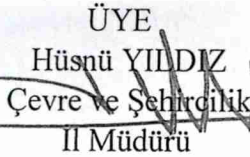 ÜYE
Hüsnü YILDIZ
Çevre ve Şehircilik
İl Müdürü